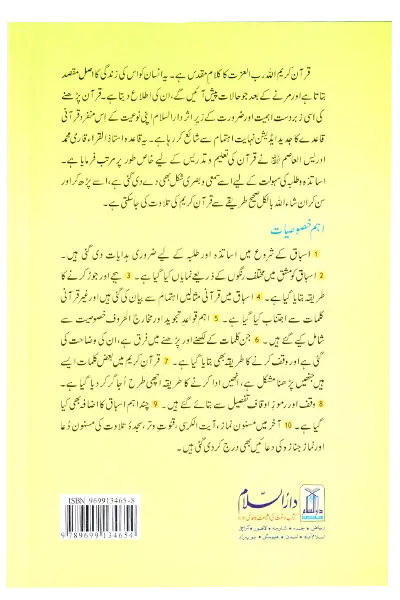 قرآن کریم اللہ رب العزت کا کلام مقدس ہے۔ یہ انسان کو اس کی زندگی کا اصل مقصد
بتاتا ہے اور مرنے کے بعد جو حالات پیش آئیں گے، ان کی اطلاع دیتا ہے۔ قرآن پڑھنے
کی اسی زبردست اہمیت اور ضرورت کے زیر اثر دارالسلام اپنی نوعیت کے اِس منفرد قرآنی
قاعدے کا جدید ایڈیشن نہایت اہتمام سے شائع کر رہا ہے۔ یہ قاعدہ استاذ القراء قاری محمد
ادریس العاصم نے قرآن کی تعلیم و تدریس کے لیے خاص طور پر مرتب فرمایا ہے۔
اساتذہ و طلبہ کی سہولت کے لیے اسے سمعی و بصری شکل بھی دے دی گئی ہے، اسے پڑھ کر اور
سن کر ان شاء اللہ بالکل صحیح طریقے سے قرآن کریم کی تلاوت کی جاسکتی ہے۔
اہم خصوصیات
1 اسباق کے شروع میں اساتذہ اور طلبہ کے لیے ضروری ہدایات دی گئی ہیں۔
2 اسباق کو مشق میں مختلف رنگوں کے ذریعے نمایاں کیا گیا ہے۔ 3 ہجے اور جوڑ کرنے کا
طریقہ بتایا گیا ہے۔ 4 اسباق میں قرآنی مثالیں اہتمام سے بیان کی گئی ہیں اور غیر قرآنی
کلمات سے اجتناب کیا گیا ہے۔ 5 اہم قواعد تجوید اور مخارج الحروف خصوصیت سے
شامل کیے گئے ہیں۔ 6 جن کلمات کے لکھنے اور پڑھنے میں فرق ہے، ان کی وضاحت کی
گئی ہے اور وقف کرنے کا طریقہ بھی بتایا گیا ہے۔ 7 قرآن کریم میں بعض کلمات ایسے
ہیں جنھیں پڑھنا مشکل ہے، انھیں ادا کرنے کا طریقہ اچھی طرح اُجاگر کر دیا گیا ہے۔
8 وقف اور رموزِ اوقاف تفصیل سے بتائے گئے ہیں۔ 9 چند اہم اسباق کا اضافہ بھی کیا
گیا ہے۔ 10 آخر میں مسنون نماز، آیت الکرسی، قنوتِ وتر، سجدۂ تلاوت کی مسنون دُعا
اور نماز جنازہ کی دعائیں بھی درج کر دی گئی ہیں۔
ISBN 969913465-8
9 789699 134654
دارالسلام